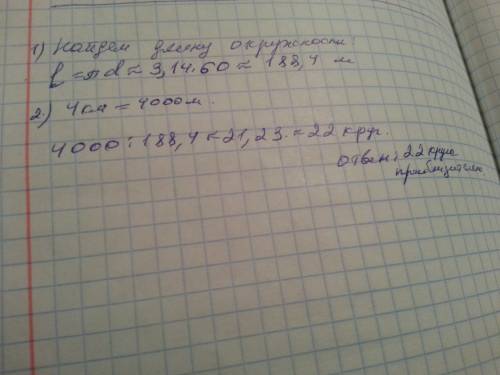 1) Найдем длину окружности:
l = πd ≈ 3,14·60 ≈ 188,4 м
2.) 4км = 4000м.
4000 : 188,4 ≈ 21,23 ≈ 22 круг.
Ответ: 22 круга
приблизительно